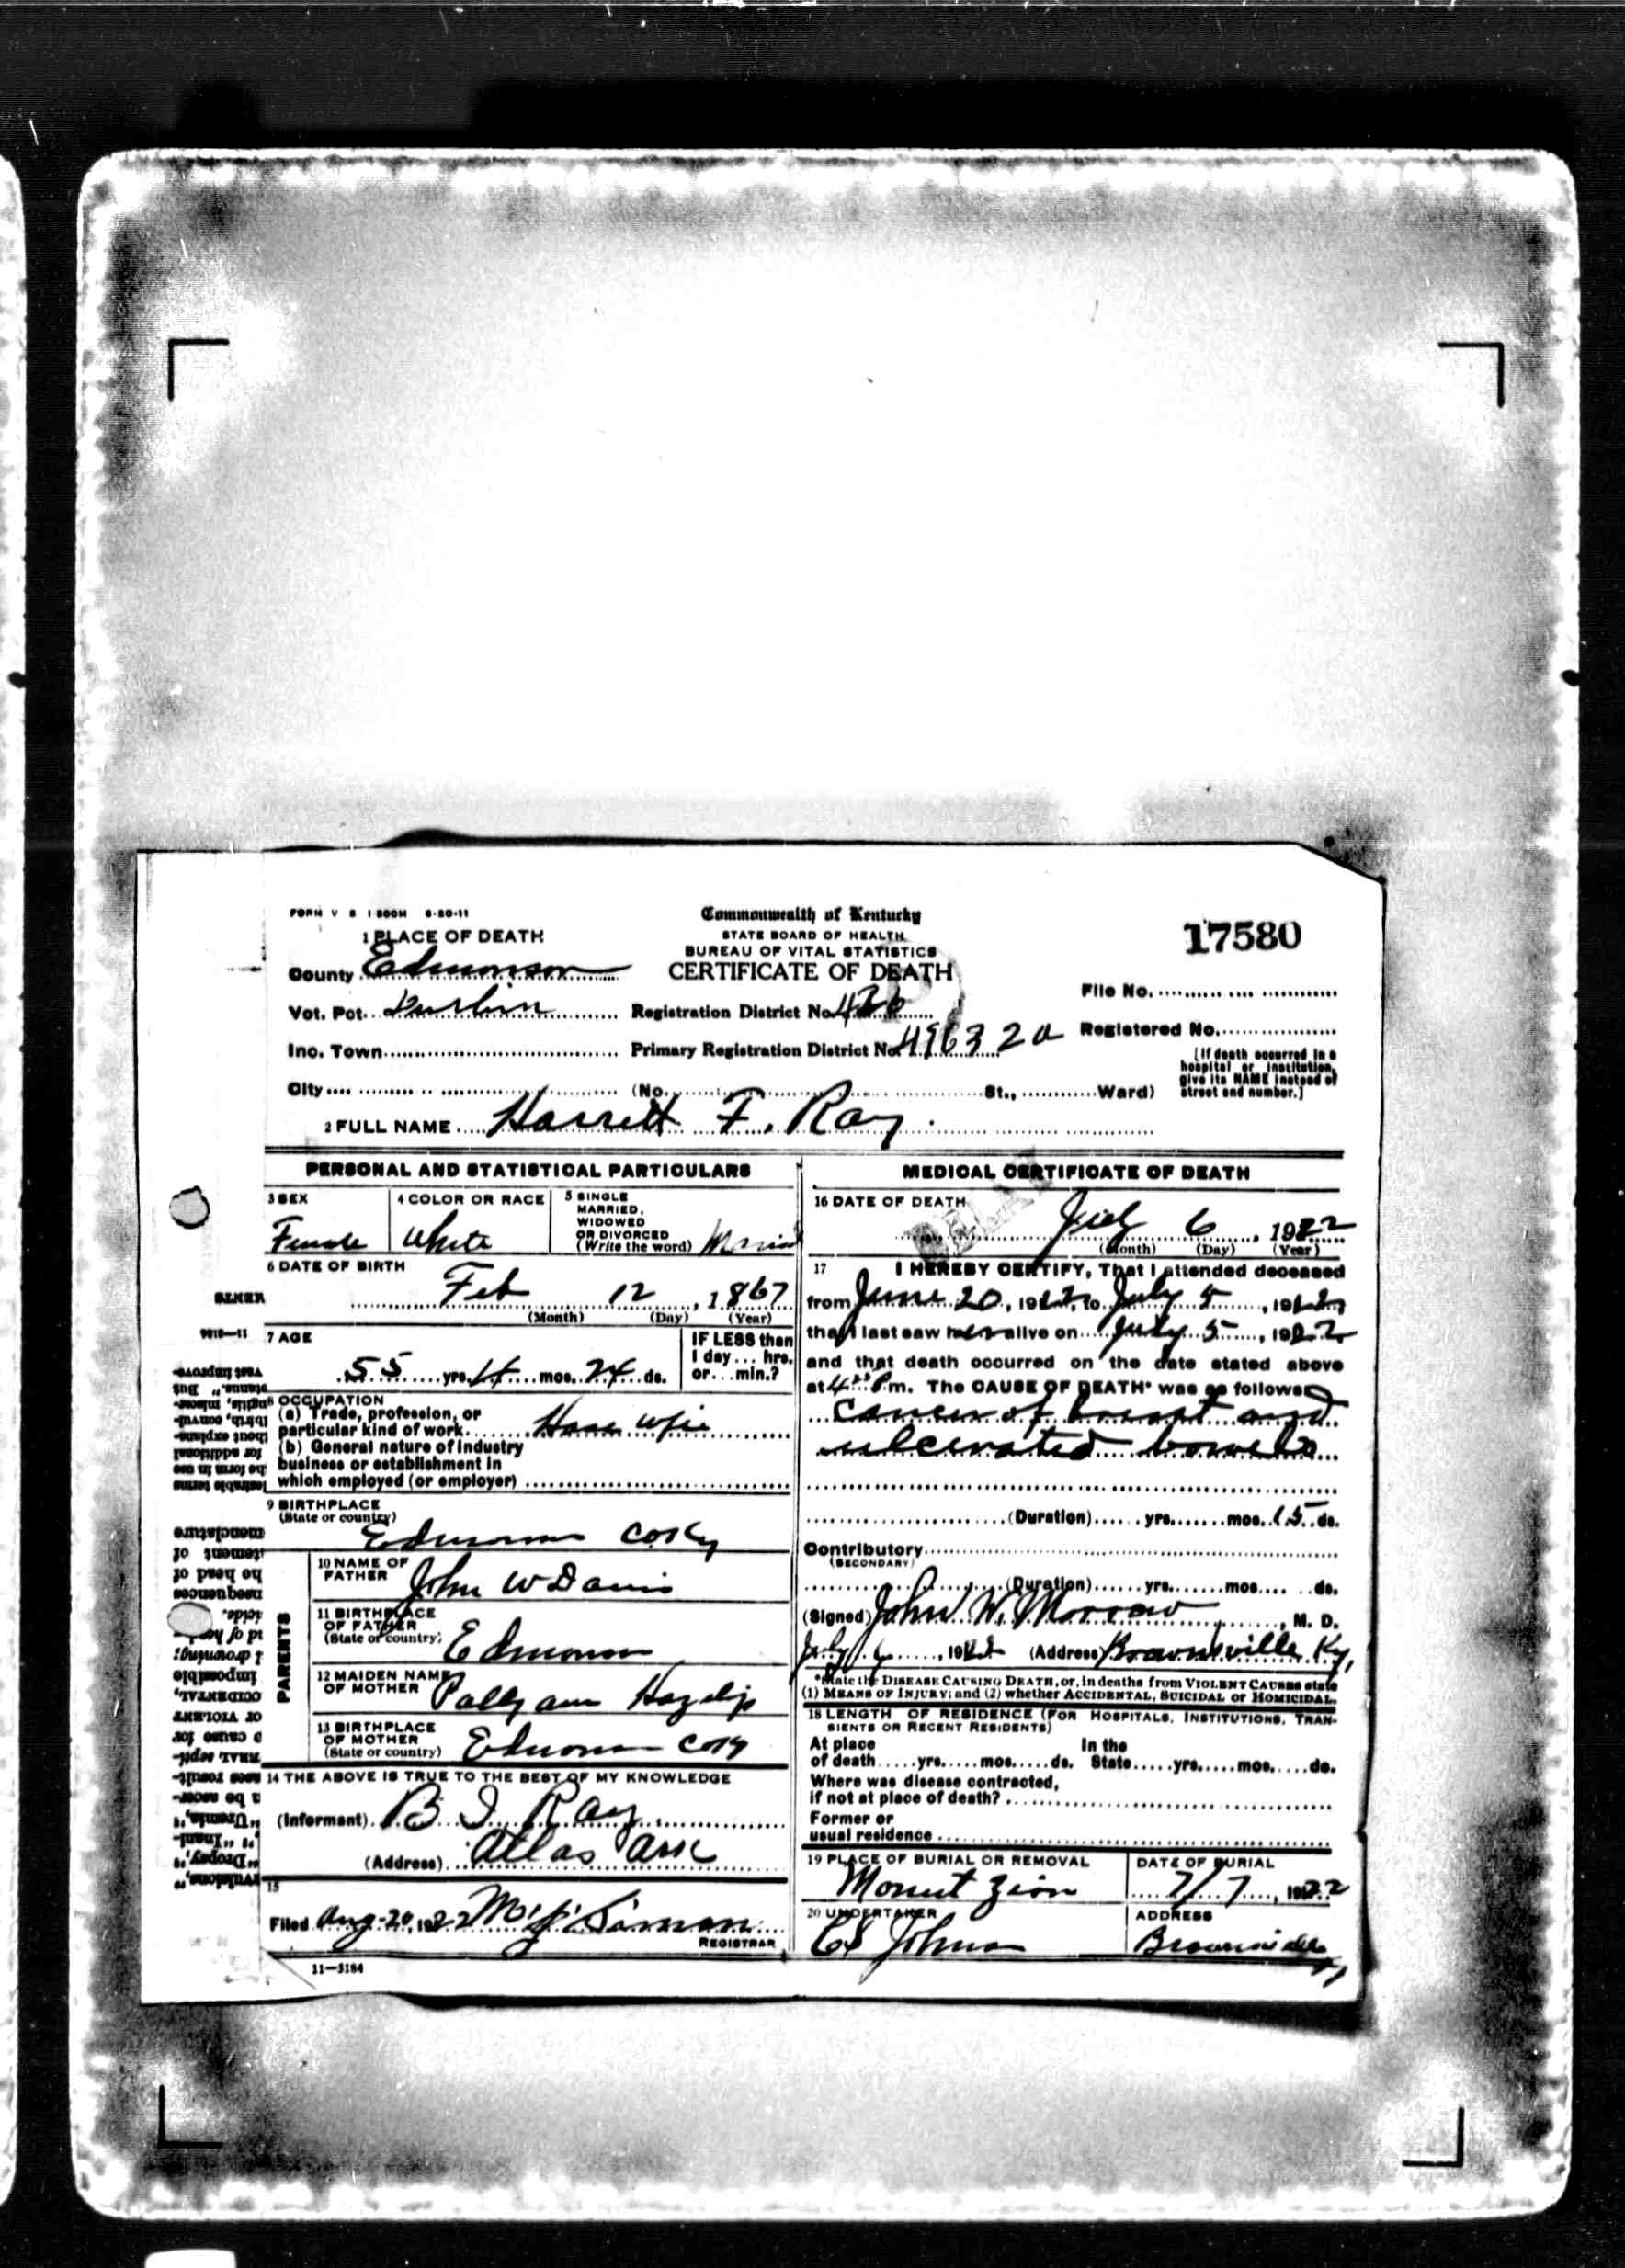 FORM V S 1 500M 6-20-11
Commonwealth of Kentucky
STATE BOARD OF HEALTH
BUREAU OF VITAL STATISTICS
CERTIFICATE OF DEATH
17580
1 PLACE OF DEATH
County Edmonson
Vot. Pct.
Registration District No.
File No.
Inc. Town
Primary Registration District No.
Registered No.
City (No. St., Ward)
[If death occurred in a
hospital or institution,
give its NAME instead of
street and number.]
2 FULL NAME Harrett F. Ray
PERSONAL AND STATISTICAL PARTICULARS
3 SEX
Female
4 COLOR OR RACE
White
5 SINGLE
MARRIED,
WIDOWED
OR DIVORCED
(Write the word)
6 DATE OF BIRTH
Feb 12, 1867
(Month) (Day) (Year)
7 AGE
55 yrs. 4 mos. 24 ds.
IF LESS than
1 day... hrs.
or... min.?
OCCUPATION
(a) Trade, profession, or
particular kind of work House wife
(b) General nature of industry
business or establishment in
which employed (or employer)
9 BIRTHPLACE
(State or country)
Edmonson Co Ky
PARENTS
10 NAME OF
FATHER
John W Davis
11 BIRTHPLACE
OF FATHER
(State or country)
Edmonson
12 MAIDEN NAME
OF MOTHER
Polly ann Hazelip
13 BIRTHPLACE
OF MOTHER
(State or country)
Edmonson Co Ky
14 THE ABOVE IS TRUE TO THE BEST OF MY KNOWLEDGE
(Informant) B I Ray
(Address)
15
Filed Aug 20, 1922
REGISTRAR
11—3184
MEDICAL CERTIFICATE OF DEATH
16 DATE OF DEATH
July 6, 1922
(Month) (Day) (Year)
17 I HEREBY CERTIFY, That I attended deceased
from June 20, 1922, to July 5, 1922
that I last saw her alive on July 5, 1922
and that death occurred on the date stated above
at m. The CAUSE OF DEATH* was as follows
Cancer of breast and
ulcerated bowels
(Duration) yrs. mos. 15 ds.
Contributory
(SECONDARY)
(Duration) yrs. mos. ds.
(Signed) John W. Morrow, M. D.
July 6, 1922 (Address) Brownsville Ky,
*State the DISEASE CAUSING DEATH, or, in deaths from VIOLENT CAUSES state
(1) MEANS OF INJURY; and (2) whether ACCIDENTAL, SUICIDAL or HOMICIDAL.
18 LENGTH OF RESIDENCE (FOR HOSPITALS, INSTITUTIONS, TRAN-
SIENTS OR RECENT RESIDENTS)
At place In the
of death yrs. mos. ds. State yrs. mos. ds.
Where was disease contracted,
if not at place of death?
Former or
usual residence
19 PLACE OF BURIAL OR REMOVAL
Mount Zion
DATE OF BURIAL
7/7, 1922
20 UNDERTAKER
ADDRESS
Brownsville